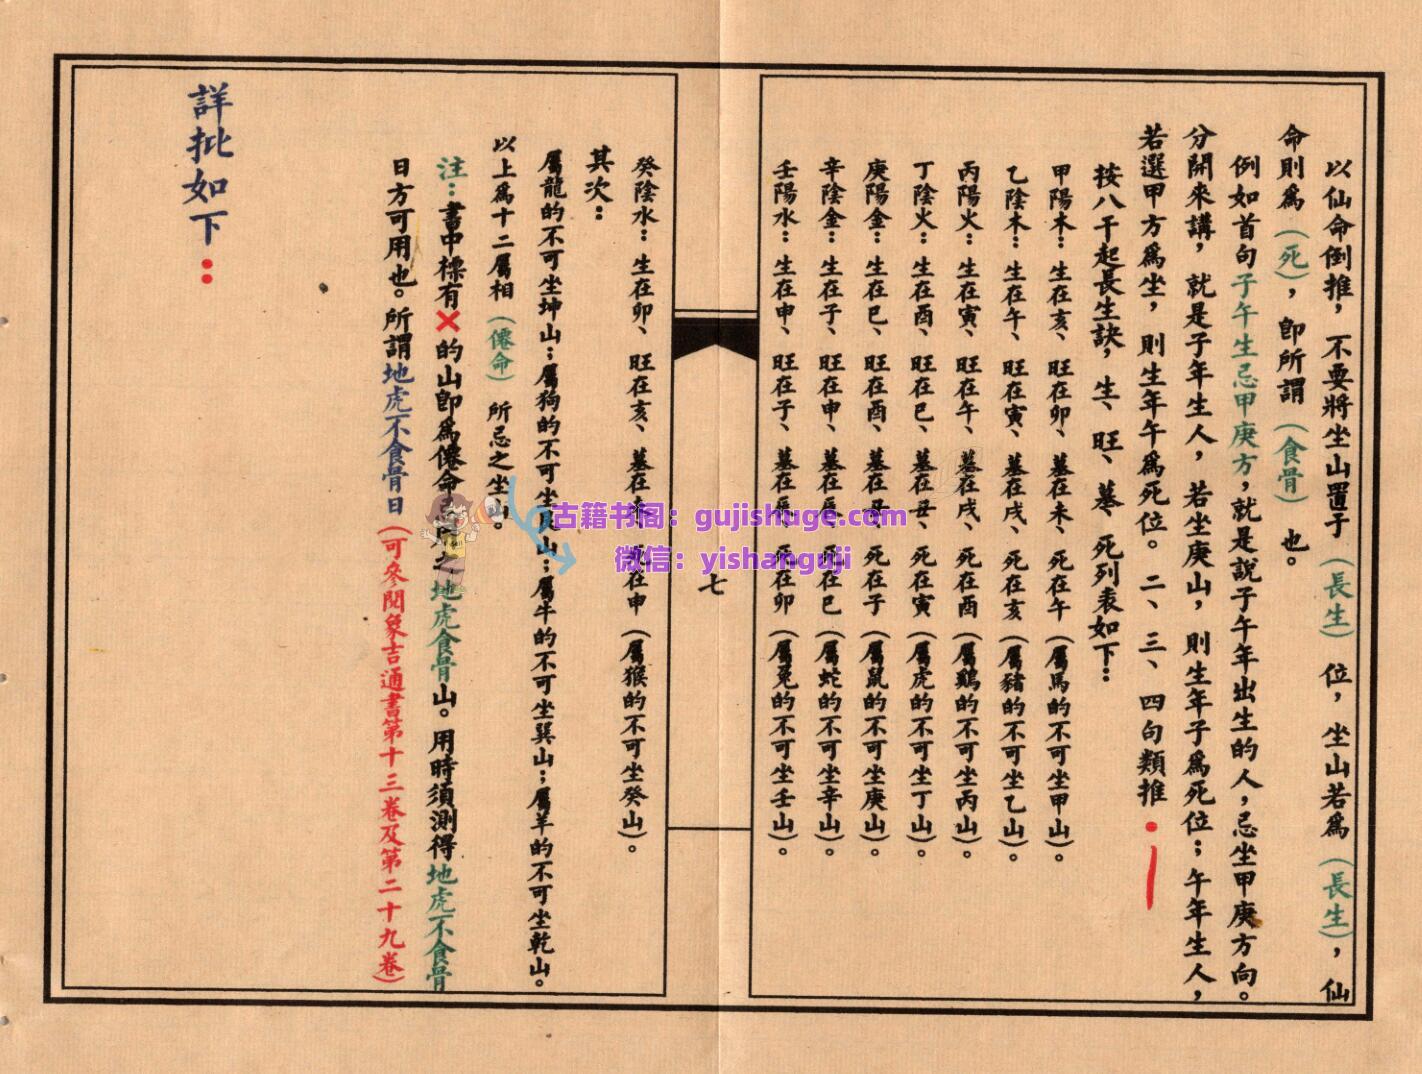 以仙命倒推，不要將坐山置于（長生）位，坐山若為（長生），仙
命則為（死），即所謂（食骨）也。
例如首句子午生忌甲庚方，就是說子午年出生的人，忌坐甲庚方向。
分開來講，就是子年生人，若坐庚山，則生年子為死位；午年生人，
若選甲方為坐，則生年午為死位。二、三、四句類推。
按八干起長生訣，生、旺、墓、死列表如下：
甲陽木：生在亥、旺在卯、墓在未、死在午（屬馬的不可坐甲山）。
乙陰木：生在午、旺在寅、墓在戌、死在亥（屬豬的不可坐乙山）。
丙陽火：生在寅、旺在午、墓在戌、死在酉（屬鷄的不可坐丙山）。
丁陰火：生在酉、旺在巳、墓在丑、死在寅（屬虎的不可坐丁山）。
庚陽金：生在巳、旺在酉、墓在丑、死在子（屬鼠的不可坐庚山）。
辛陰金：生在子、旺在申、墓在辰、死在巳（屬蛇的不可坐辛山）。
壬陽水：生在申、旺在子、墓在辰、死在卯（屬兔的不可坐壬山）。
七
癸陰水：生在卯、旺在亥、墓在未、死在申（屬猴的不可坐癸山）。
其次：
屬龍的不可坐坤山；屬狗的不可坐艮山；屬牛的不可坐巽山；屬羊的不可坐乾山。
以上為十二屬相（僊命）所忌之坐山。
注：書中標有×的山即為僊命之地虎食骨山。用時須測得地虎不食骨
日方可用也。所謂地虎不食骨日（可參閱象吉通書第十三卷及第二十九卷）
詳批如下：
古籍书阁：gujishuge.com
微信：yishanguji